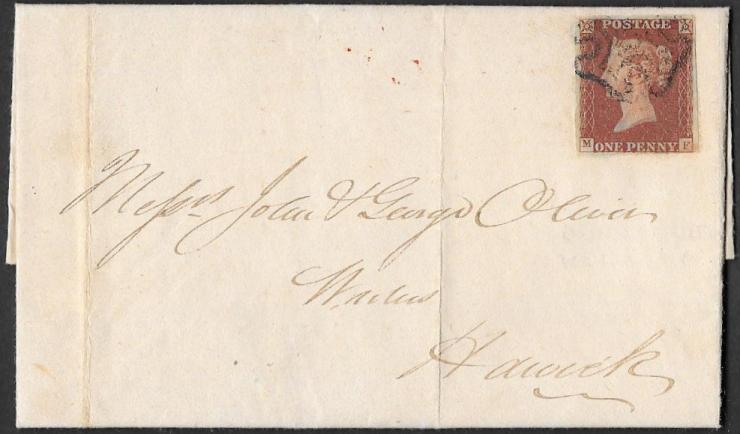 POSTAGE
ONE PENNY
M F
Messrs John & George Oliver
Writers
Hawick